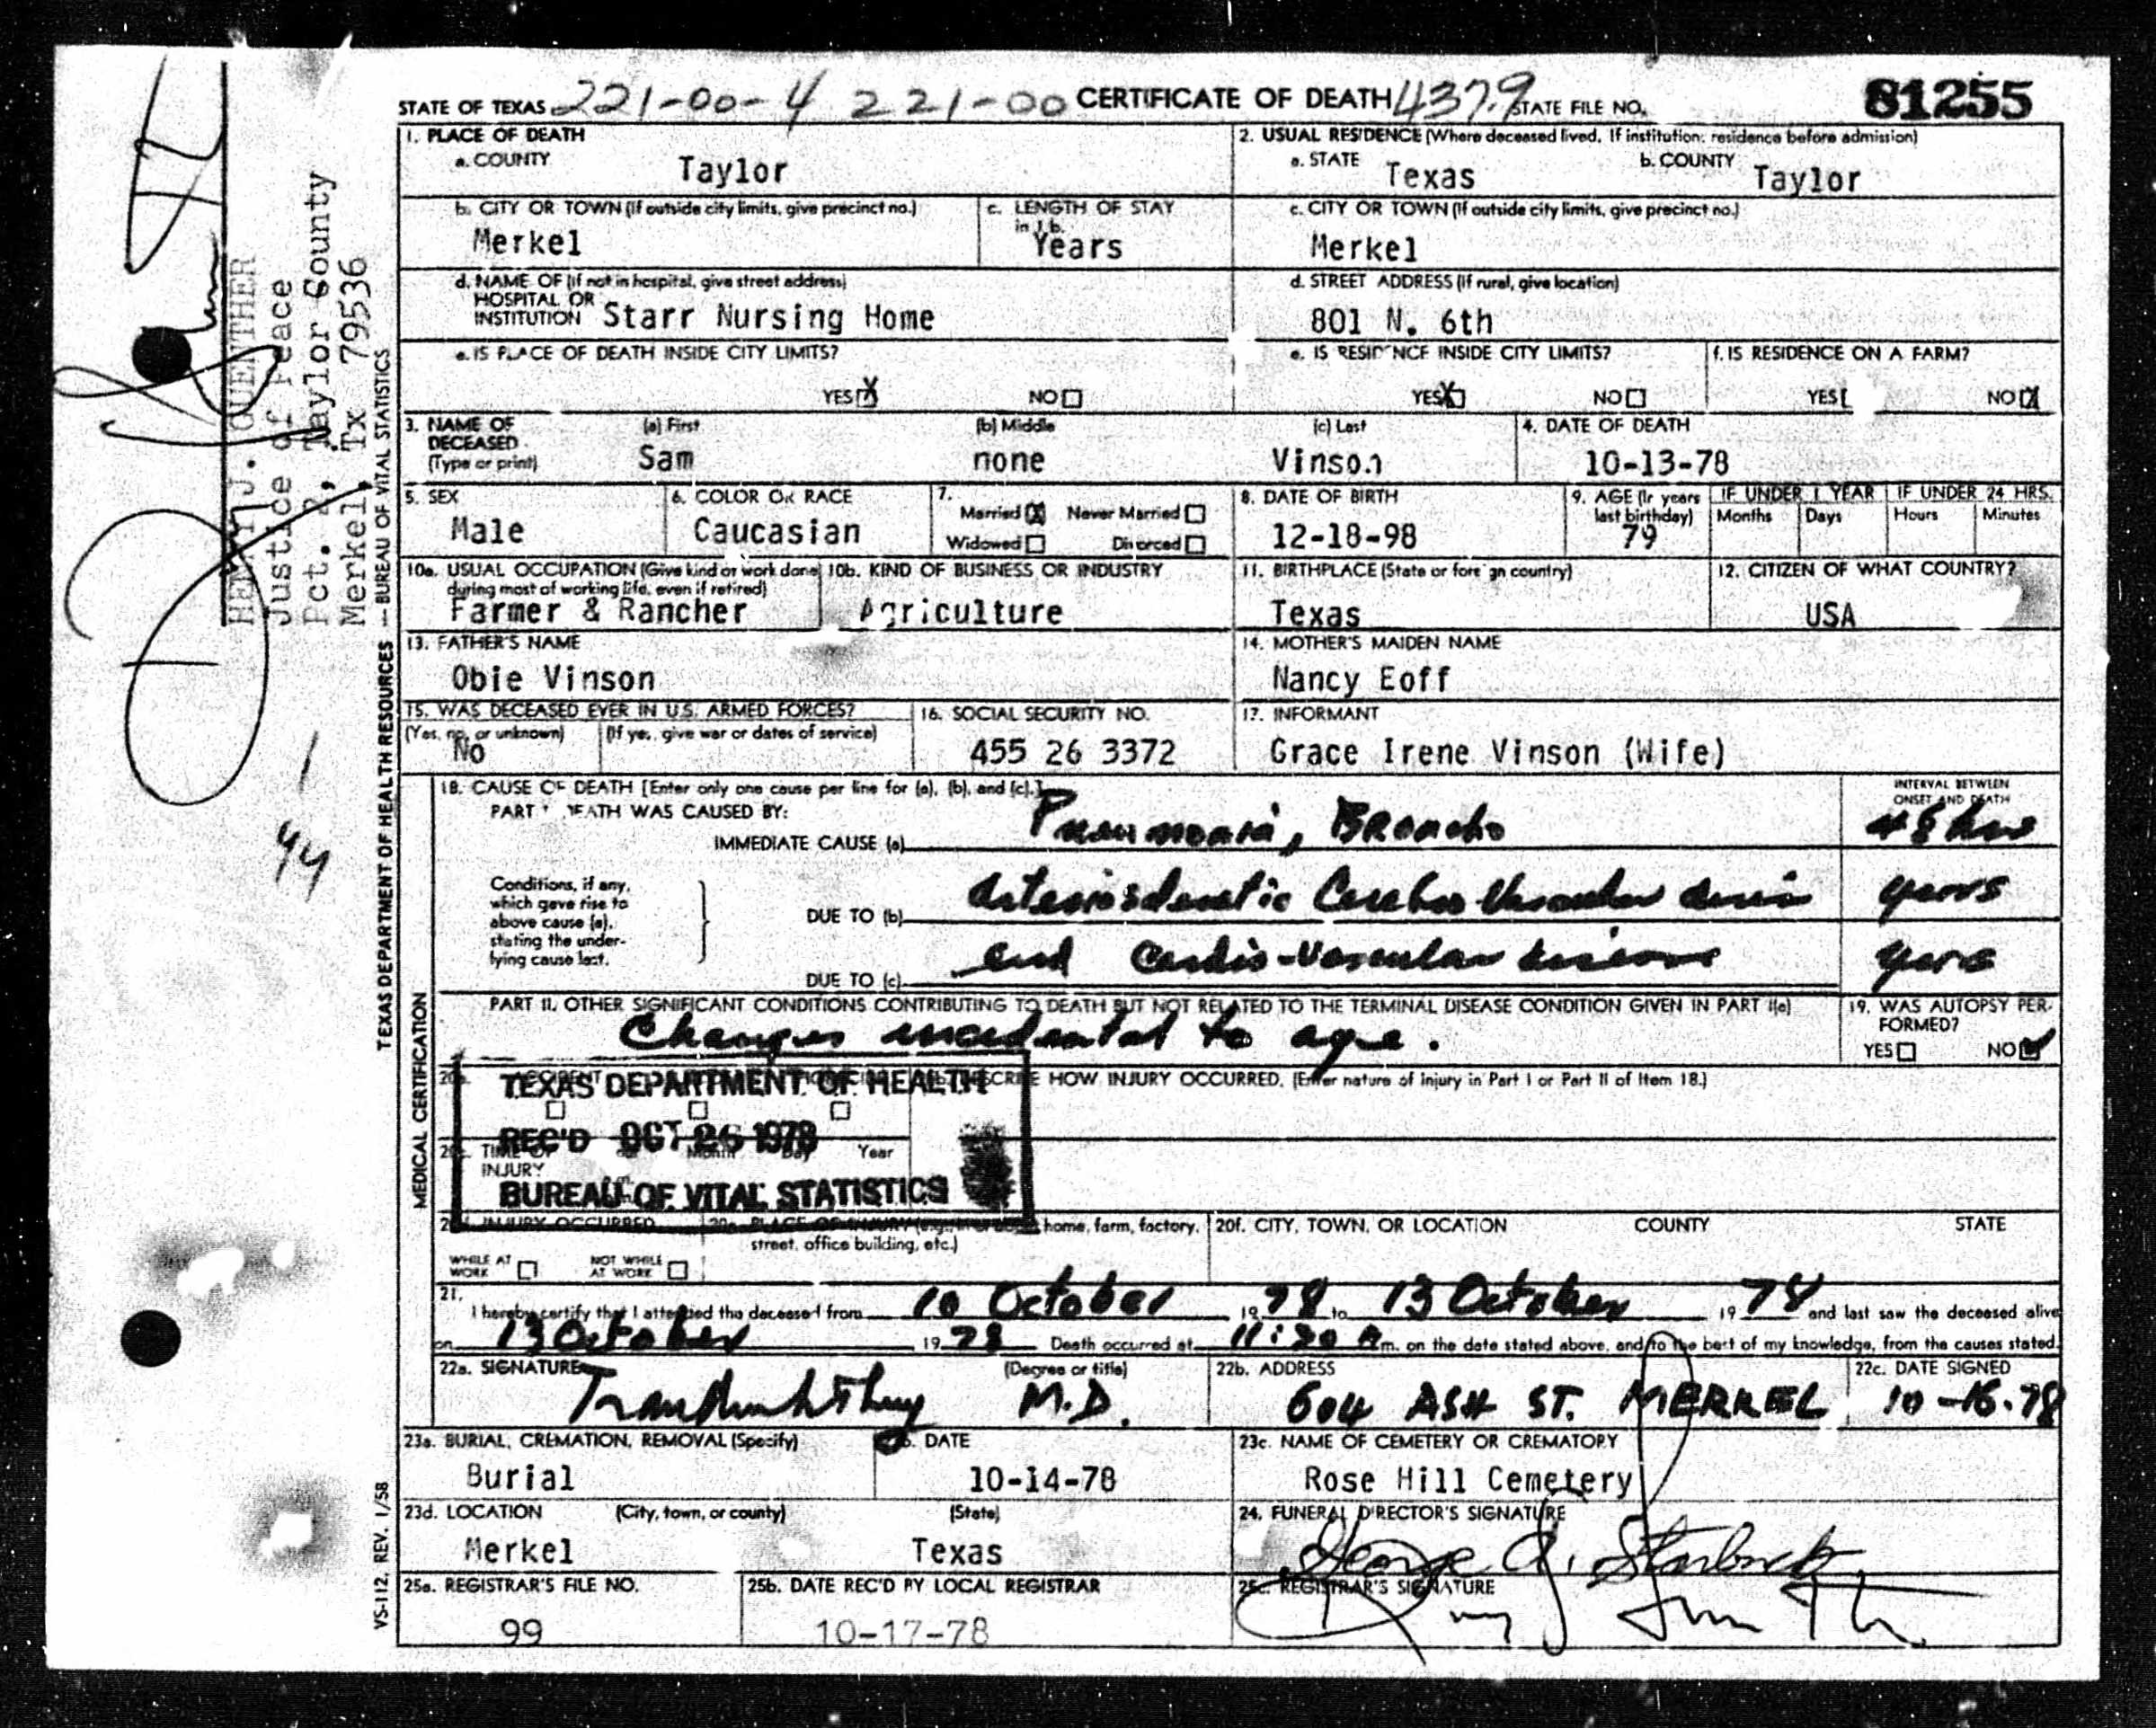 STATE OF TEXAS 221-00-4 221-00 CERTIFICATE OF DEATH 437.9 STATE FILE NO. 81255
1. PLACE OF DEATH
a. COUNTY Taylor
2. USUAL RESIDENCE (Where deceased lived. If institution: residence before admission)
a. STATE Texas b. COUNTY Taylor
b. CITY OR TOWN (If outside city limits, give precinct no.) Merkel
c. LENGTH OF STAY in 1 b. Years
c. CITY OR TOWN (If outside city limits, give precinct no.) Merkel
d. NAME OF (If not in hospital, give street address) HOSPITAL OR INSTITUTION Starr Nursing Home
d. STREET ADDRESS (If rural, give location) 801 N. 6th
e. IS PLACE OF DEATH INSIDE CITY LIMITS? YES X NO
e. IS RESIDENCE INSIDE CITY LIMITS? YES X NO
f. IS RESIDENCE ON A FARM? YES NO X
3. NAME OF DECEASED (Type or print) (a) First Sam (b) Middle none (c) Last Vinson
4. DATE OF DEATH 10-13-78
5. SEX Male
6. COLOR OR RACE Caucasian
7. Married X Never Married Widowed Divorced
8. DATE OF BIRTH 12-18-98
9. AGE (In years last birthday) 79
IF UNDER 1 YEAR Months Days
IF UNDER 24 HRS. Hours Minutes
10a. USUAL OCCUPATION (Give kind of work done during most of working life, even if retired) Farmer & Rancher
10b. KIND OF BUSINESS OR INDUSTRY Agriculture
11. BIRTHPLACE (State or foreign country) Texas
12. CITIZEN OF WHAT COUNTRY? USA
13. FATHER'S NAME Obie Vinson
14. MOTHER'S MAIDEN NAME Nancy Eoff
15. WAS DECEASED EVER IN U.S. ARMED FORCES? (Yes, no, or unknown) No (If yes, give war or dates of service)
16. SOCIAL SECURITY NO. 455 26 3372
17. INFORMANT Grace Irene Vinson (Wife)
18. CAUSE OF DEATH [Enter only one cause per line for (a), (b), and (c).]
INTERVAL BETWEEN ONSET AND DEATH
PART I DEATH WAS CAUSED BY:
IMMEDIATE CAUSE (a) Pneumonia, Broncho 48 hrs
Conditions, if any, which gave rise to above cause (a), stating the underlying cause last.
DUE TO (b) Arteriosclerotic Cerebro Vascular disease years
DUE TO (c) and Cardio-Vascular disease years
PART II. OTHER SIGNIFICANT CONDITIONS CONTRIBUTING TO DEATH BUT NOT RELATED TO THE TERMINAL DISEASE CONDITION GIVEN IN PART I(a)
Changes incidental to age.
19. WAS AUTOPSY PERFORMED? YES NO ✓
HOW INJURY OCCURRED. (Enter nature of injury in Part I or Part II of Item 18.)
TEXAS DEPARTMENT OF HEALTH
REC'D OCT 26 1978
BUREAU OF VITAL STATISTICS
TIME OF INJURY Month Day Year
INJURY OCCURRED WHILE AT WORK NOT WHILE AT WORK
PLACE OF INJURY home, farm, factory, street, office building, etc.)
20f. CITY, TOWN, OR LOCATION COUNTY STATE
21. I hereby certify that I attended the deceased from 10 October 1978 to 13 October 1978 and last saw the deceased alive
on 13 October 1978 Death occurred at 11:20 A m. on the date stated above, and to the best of my knowledge, from the causes stated.
22a. SIGNATURE (Degree or title) M.D.
22b. ADDRESS 604 ASH ST. MERKEL
22c. DATE SIGNED 10-16-78
23a. BURIAL, CREMATION, REMOVAL (Specify) Burial
b. DATE 10-14-78
23c. NAME OF CEMETERY OR CREMATORY Rose Hill Cemetery
23d. LOCATION (City, town, or county) Merkel (State) Texas
24. FUNERAL DIRECTOR'S SIGNATURE George A. Starbuck
25a. REGISTRAR'S FILE NO. 99
25b. DATE REC'D BY LOCAL REGISTRAR 10-17-78
25c. REGISTRAR'S SIGNATURE
HENRY J. GUENTHER
Justice of Peace
Pct. 2, Taylor County
Merkel, Tx 79536
TEXAS DEPARTMENT OF HEALTH RESOURCES -- BUREAU OF VITAL STATISTICS
MEDICAL CERTIFICATION
VS-112, REV. 1/58
1
44